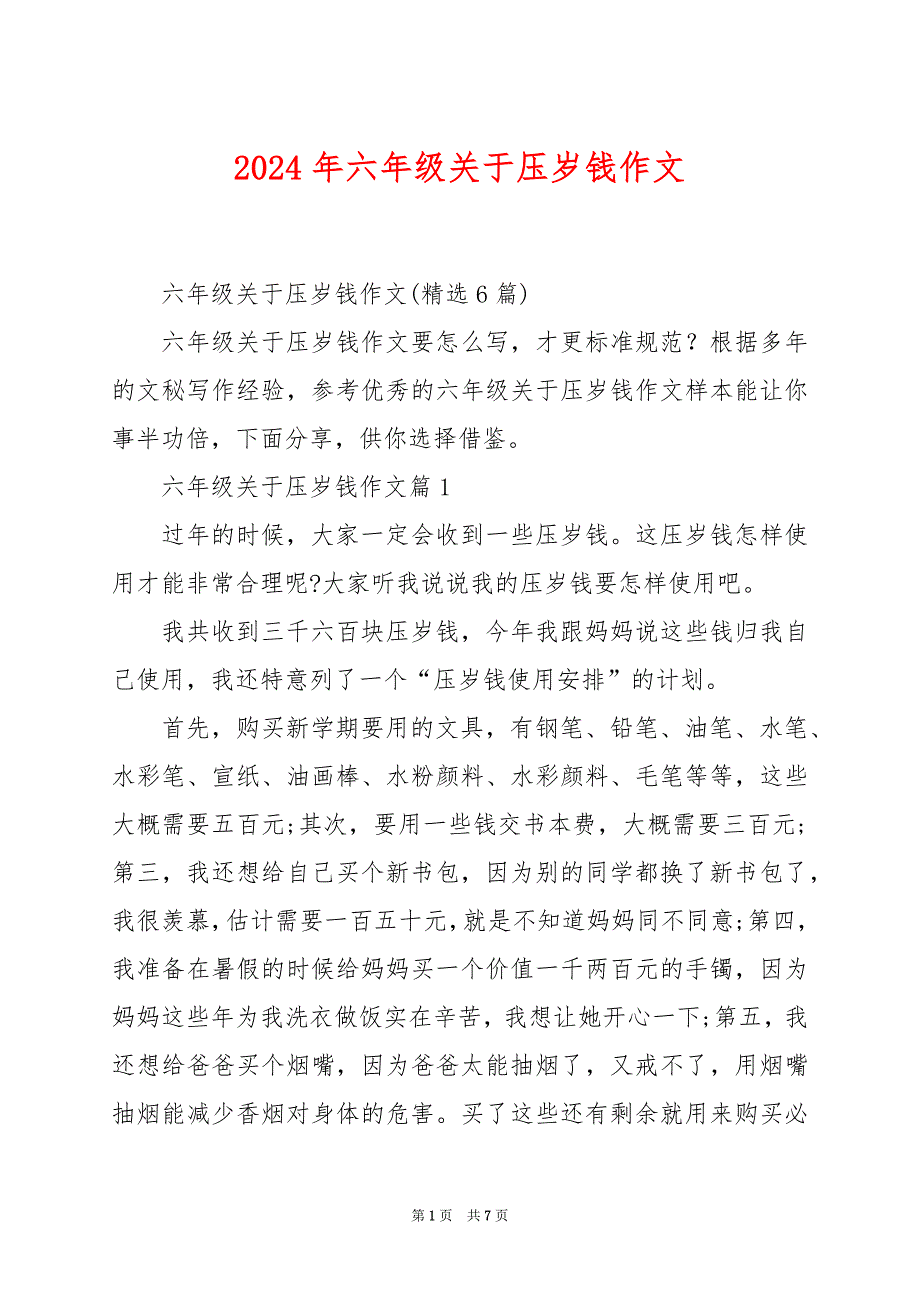 2024年六年级关于压岁钱作文
六年级关于压岁钱作文(精选6篇)
六年级关于压岁钱作文要怎么写，才更标准规范？根据多年
的文秘写作经验，参考优秀的六年级关于压岁钱作文样本能让你
事半功倍，下面分享，供你选择借鉴。
六年级关于压岁钱作文篇1
过年的时候，大家一定会收到一些压岁钱。这压岁钱怎样使
用才能非常合理呢?大家听我说说我的压岁钱要怎样使用吧。
我共收到三千六百块压岁钱，今年我跟妈妈说这些钱归我自
己使用，我还特意列了一个“压岁钱使用安排”的计划。
首先，购买新学期要用的文具，有钢笔、铅笔、油笔、水笔、
水彩笔、宣纸、油画棒、水粉颜料、水彩颜料、毛笔等等，这些
大概需要五百元;其次，要用一些钱交书本费，大概需要三百元;
第三，我还想给自己买个新书包，因为别的同学都换了新书包了，
我很羡慕，估计需要一百五十元，就是不知道妈妈同不同意;第四，
我准备在暑假的时候给妈妈买一个价值一千两百元的手镯，因为
妈妈这些年为我洗衣做饭实在辛苦，我想让她开心一下;第五，我
还想给爸爸买个烟嘴，因为爸爸太能抽烟了，又戒不了，用烟嘴
抽烟能减少香烟对身体的危害。买了这些还有剩余就用来购买必
第1页 共7页